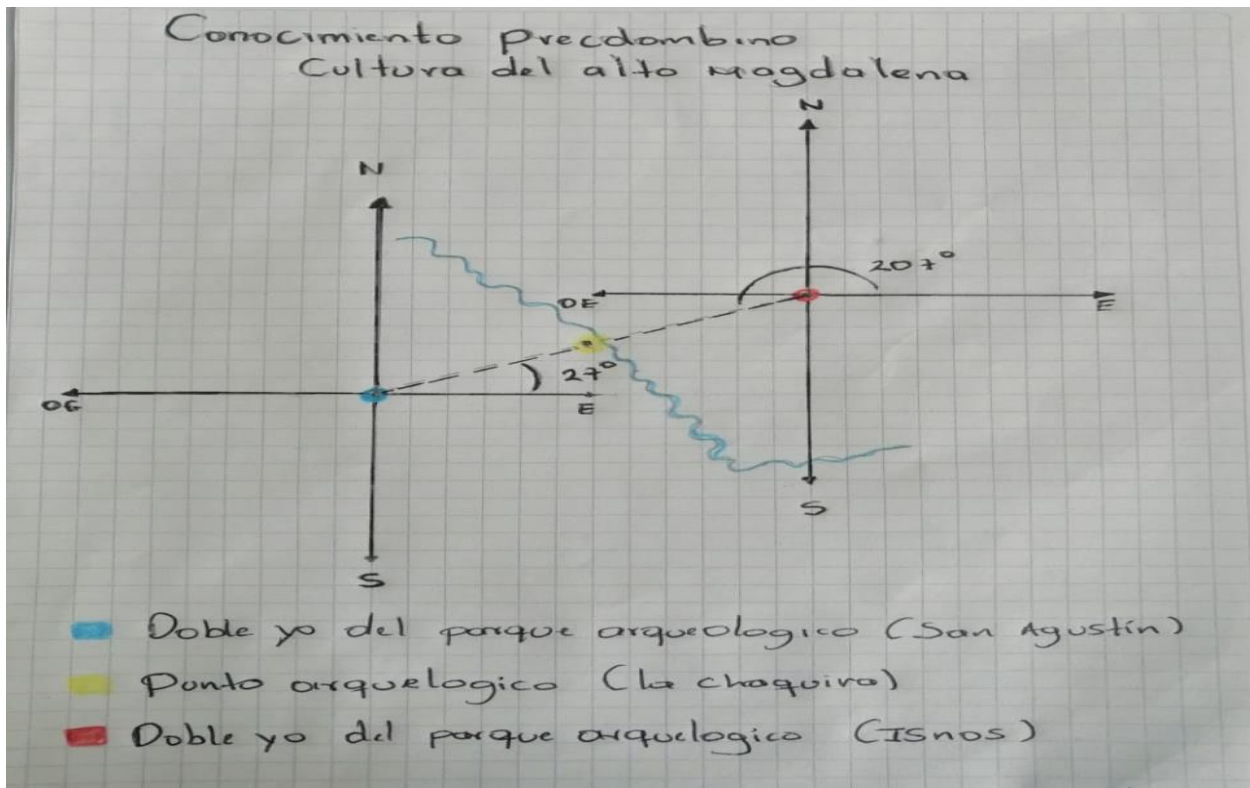 Conocimiento Precolombino
Cultura del alto Magdalena
N
N
207°
OE
E
27°
OE
E
S
S
Doble yo del parque arqueologico (San Agustín)
Punto arquelogico (la chaquira)
Doble yo del parque arquelogico (Isnos)